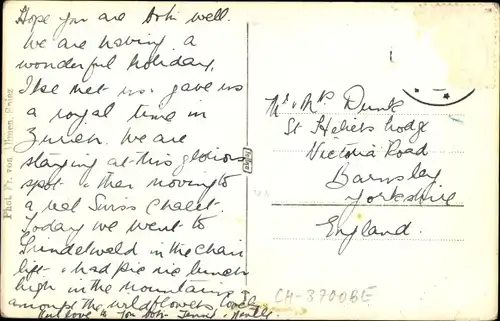 Hope you are both well.
We are having a
wonderful holiday,
Ilse met us & gave us
a royal time in
Zurich. We are
staying at this glorious
spot & then moving to
a real Swiss Chalet.
Today we went to
Grindelwald in the chair
lift & had pic nic lunch
high in the mountains
amongst the wildflowers lovely
Much love to you both
Mr & Mrs Dunk
St Heliers Lodge
Victoria Road
Barnsley
Yorkshire
England.
Phot. Fr. von Allmen
CH-3700BE